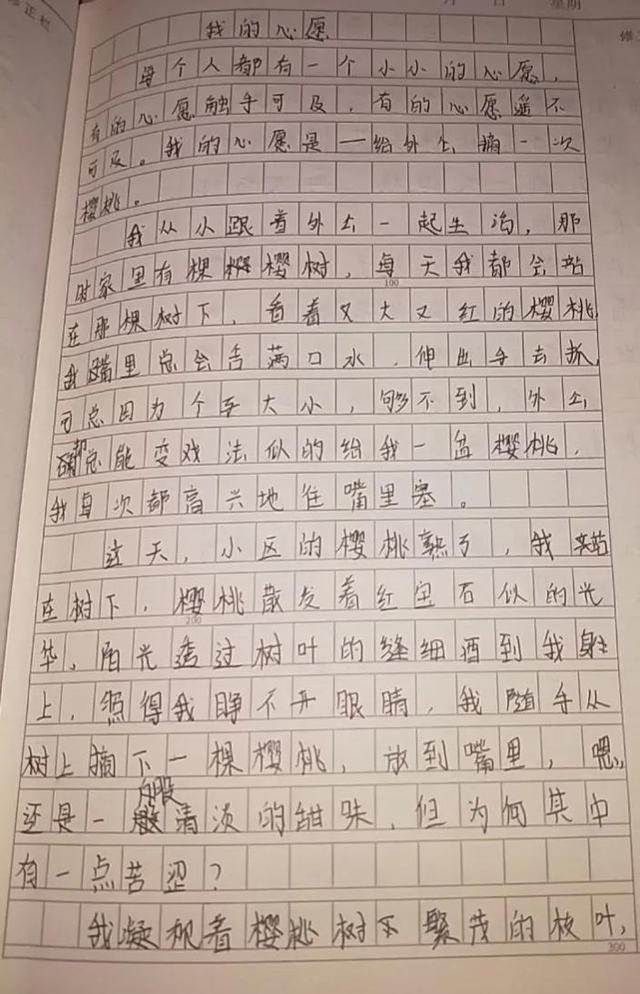 我的心愿
每个人都有一个小小的心愿，
有的心愿触手可及，有的心愿遥不
可及。我的心愿是——给外公摘一次
樱桃。
我从小跟着外公一起生活，那
时家里有棵樱樱树，每天我都会站
100
在那棵树下，看着又大又红的樱桃，
我嘴里总会含满口水，伸出手去抓，
可总因为个子太小，够不到，外公，
却总能变戏法似的给我一盆樱桃，
我每次都高兴地往嘴里塞。
这天，小区的樱桃熟了，我站
在树下，樱桃散发着红宝石似的光
200
华。阳光透过树叶的缝细洒到我身
上，照得我睁不开眼睛，我随手从
树上摘下一棵樱桃，放到嘴里，嗯，
还是一般清淡的甜味，但为何其中
有一点苦涩？
我凝视着樱桃树下繁茂的枝叶，
300